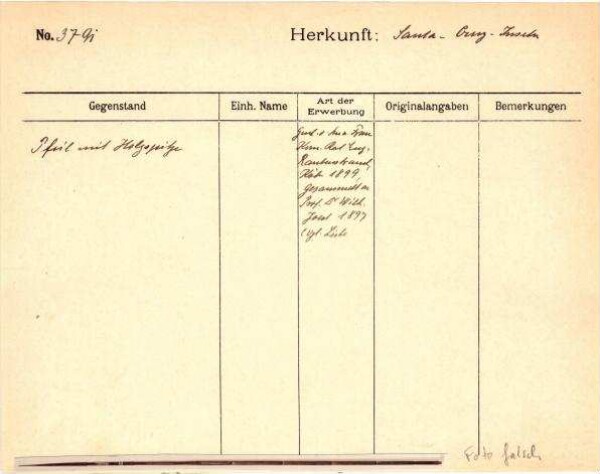 No. 379i
Herkunft: Santa-Cruz-Inseln
Gegenstand
Einh. Name
Art der
Erwerbung
Originalangaben
Bemerkungen
Pfeil mit Holzspitze
Frau
Kom. Rat Eug.
Rautenstrauch,
Köln 1899,
gesammelt v.
Prof. Dr. Wilh.
Joest 1897
(vgl. Liste
Foto falsch